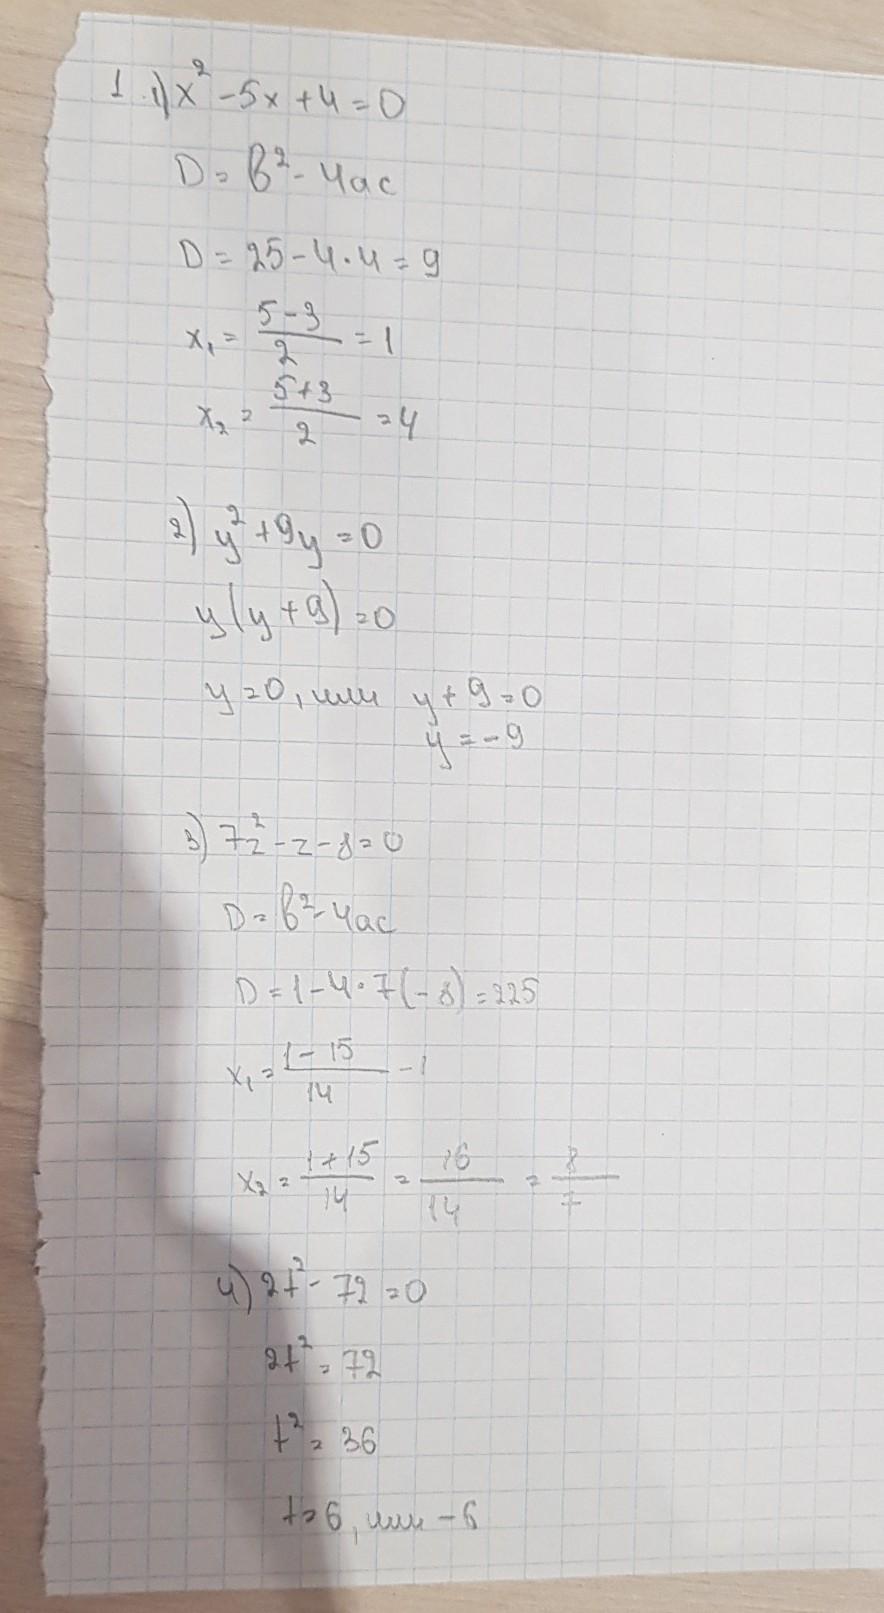 1. 1) x² - 5x + 4 = 0
D = b² - 4ac
D = 25 - 4 · 4 = 9
x₁ = (5-3)/2 = 1
x₂ = (5+3)/2 = 4
2) y² + 9y = 0
y(y + 9) = 0
y = 0, или y + 9 = 0
y = -9
3) 7z² - z - 8 = 0
D = b² - 4ac
D = 1 - 4 · 7(-8) = 225
x₁ = (1 - 15)/14 - 1
x₂ = (1 + 15)/14 = 16/14 = 8/7
4) 2t² - 72 = 0
2t² = 72
t² = 36
t = 6, или -6